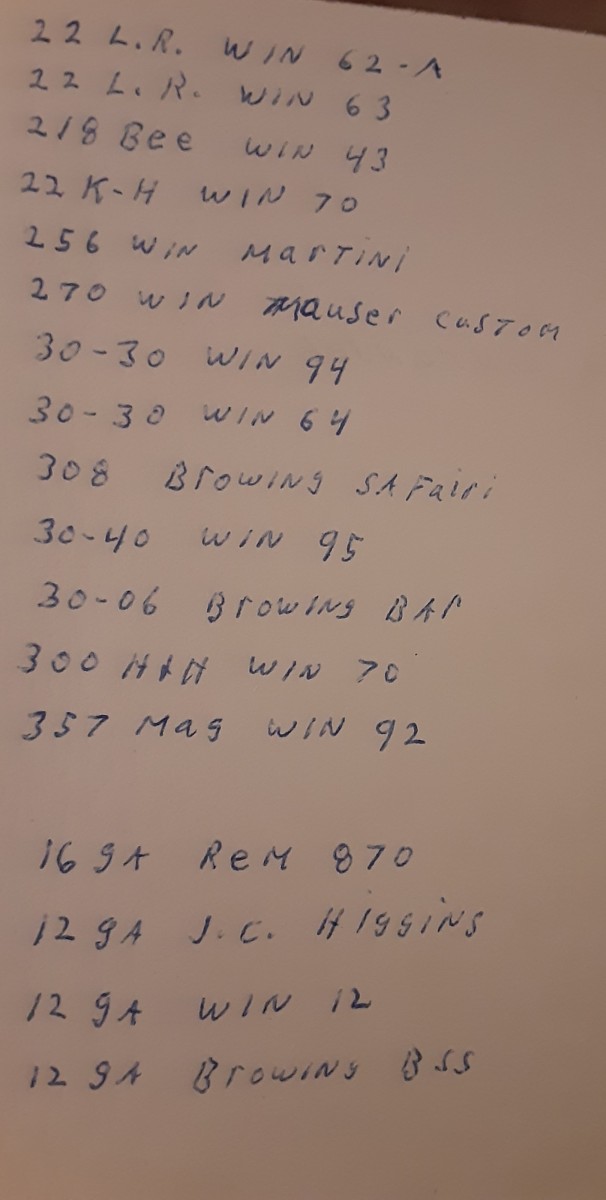 22 L.R. WIN 62-A
22 L.R. WIN 63
218 Bee WIN 43
22 K-H WIN 70
256 WIN MarTiNi
270 WIN Mauser CusToM
30-30 WIN 94
30-30 WIN 64
308 BrowiNg SAFairi
30-40 WIN 95
30-06 BrowiNg BAr
300 H&H WIN 70
357 Mag WIN 92
16 gA ReM 870
12 gA J.C. HiggiNs
12 gA WIN 12
12 gA BrowiNg BSS